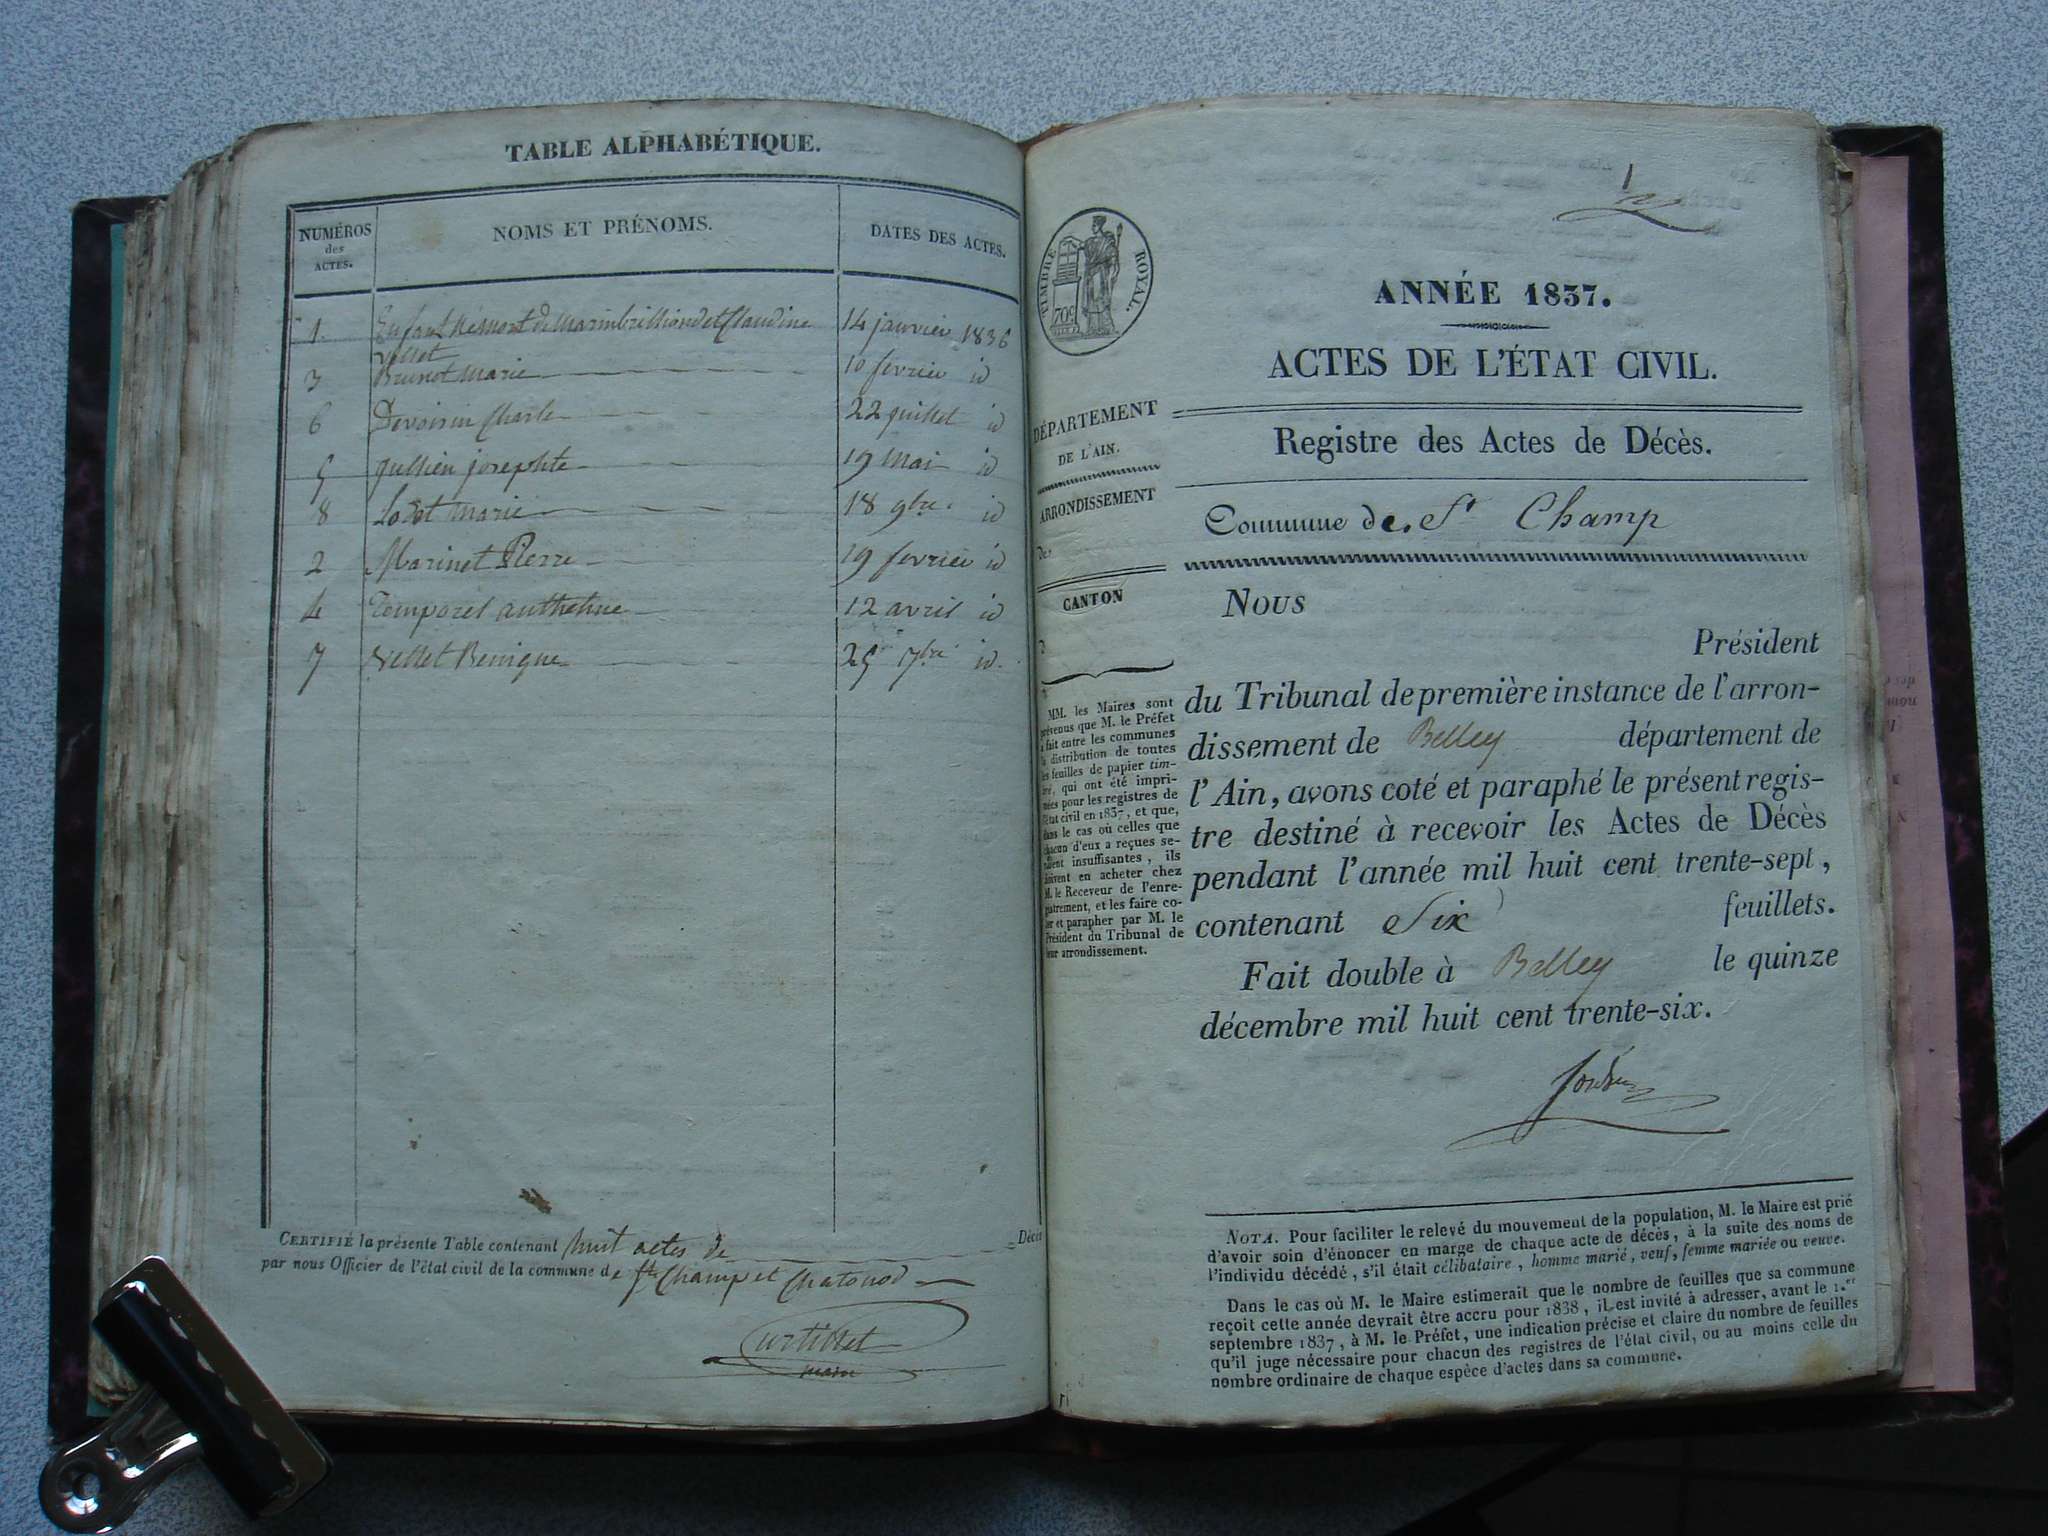 TABLE ALPHABÉTIQUE.
NUMÉROS
des
ACTES.
NOMS ET PRÉNOMS.
DATES DES ACTES.
1. Enfant né mort de Marin brilliond et Claudine 14 janvier 1836
Vellet
3 Brunet Marie 10 fevrier id
6 Devoisin Charle 22 juillet id
5 jullien josephte 19 Mai id
8 Marie 18 9bre. id
2 Marinet Pierre 19 fevrier id
4 Temporel anthelme 12 avril id
7 Vellet Benigne 25 7bre id.
CERTIFIÉ la présente Table contenant huit actes de Décès
par nous Officier de l'état civil de la commune de St Champ et Chatonod
Curtillet
maire
1
TIMBRE ROYAL.
70c
ANNÉE 1837.
ACTES DE L'ÉTAT CIVIL.
DÉPARTEMENT
DE L'AIN.
ARRONDISSEMENT
de
CANTON
d
Registre des Actes de Décès.
Commune de St Champ
Nous
Président
du Tribunal de première instance de l'arron-
dissement de Belley département de
l'Ain, avons coté et paraphé le présent regis-
tre destiné à recevoir les Actes de Décès
pendant l'année mil huit cent trente-sept,
contenant Six feuillets.
Fait double à Belley le quinze
décembre mil huit cent trente-six.
MM. les Maires sont
prévenus que M. le Préfet
a fait entre les communes
la distribution de toutes
les feuilles de papier tim-
bré, qui ont été impri-
mées pour les registres de
l'état civil en 1837, et que,
dans le cas où celles que
chacun d'eux a reçues se-
raient insuffisantes, ils
doivent en acheter chez
M. le Receveur de l'enre-
gistrement, et les faire co-
ter et parapher par M. le
Président du Tribunal de
leur arrondissement.
NOTA. Pour faciliter le relevé du mouvement de la population, M. le Maire est prié
d'avoir soin d'énoncer en marge de chaque acte de décès, à la suite des noms de
l'individu décédé, s'il était célibataire, homme marié, veuf, femme mariée ou veuve.
Dans le cas où M. le Maire estimerait que le nombre de feuilles que sa commune
reçoit cette année devrait être accru pour 1838, il est invité à adresser, avant le 1.er
septembre 1837, à M. le Préfet, une indication précise et claire du nombre de feuilles
qu'il juge nécessaire pour chacun des registres de l'état civil, ou au moins celle du
nombre ordinaire de chaque espèce d'actes dans sa commune.